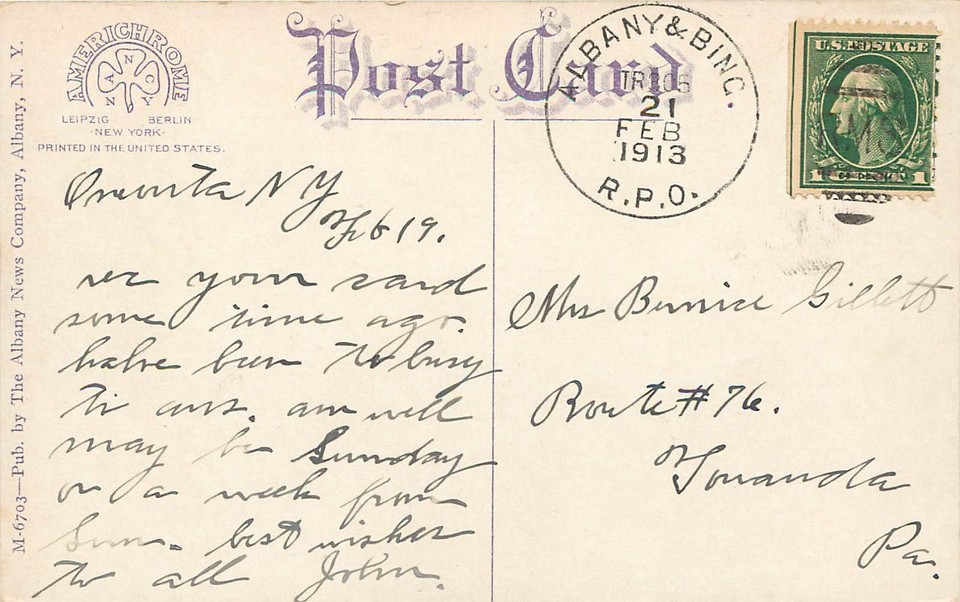 AMERICHROME
A N C N Y
LEIPZIG BERLIN
·NEW YORK·
PRINTED IN THE UNITED STATES.
Post Card
ALBANY & BING.
TR305
21
FEB
1913
R.P.O.
U.S. POSTAGE
1 1
M-6703—Pub. by The Albany News Company, Albany, N. Y.
Oneonta NY
Feb 19.
rec your card
some time ago.
halve been to busy
to ans. am well
may be Sunday
or a week from
Sun. best wishes
to all John.
Mrs Bernice Gillett
Route # 76.
Towanda
Pa.